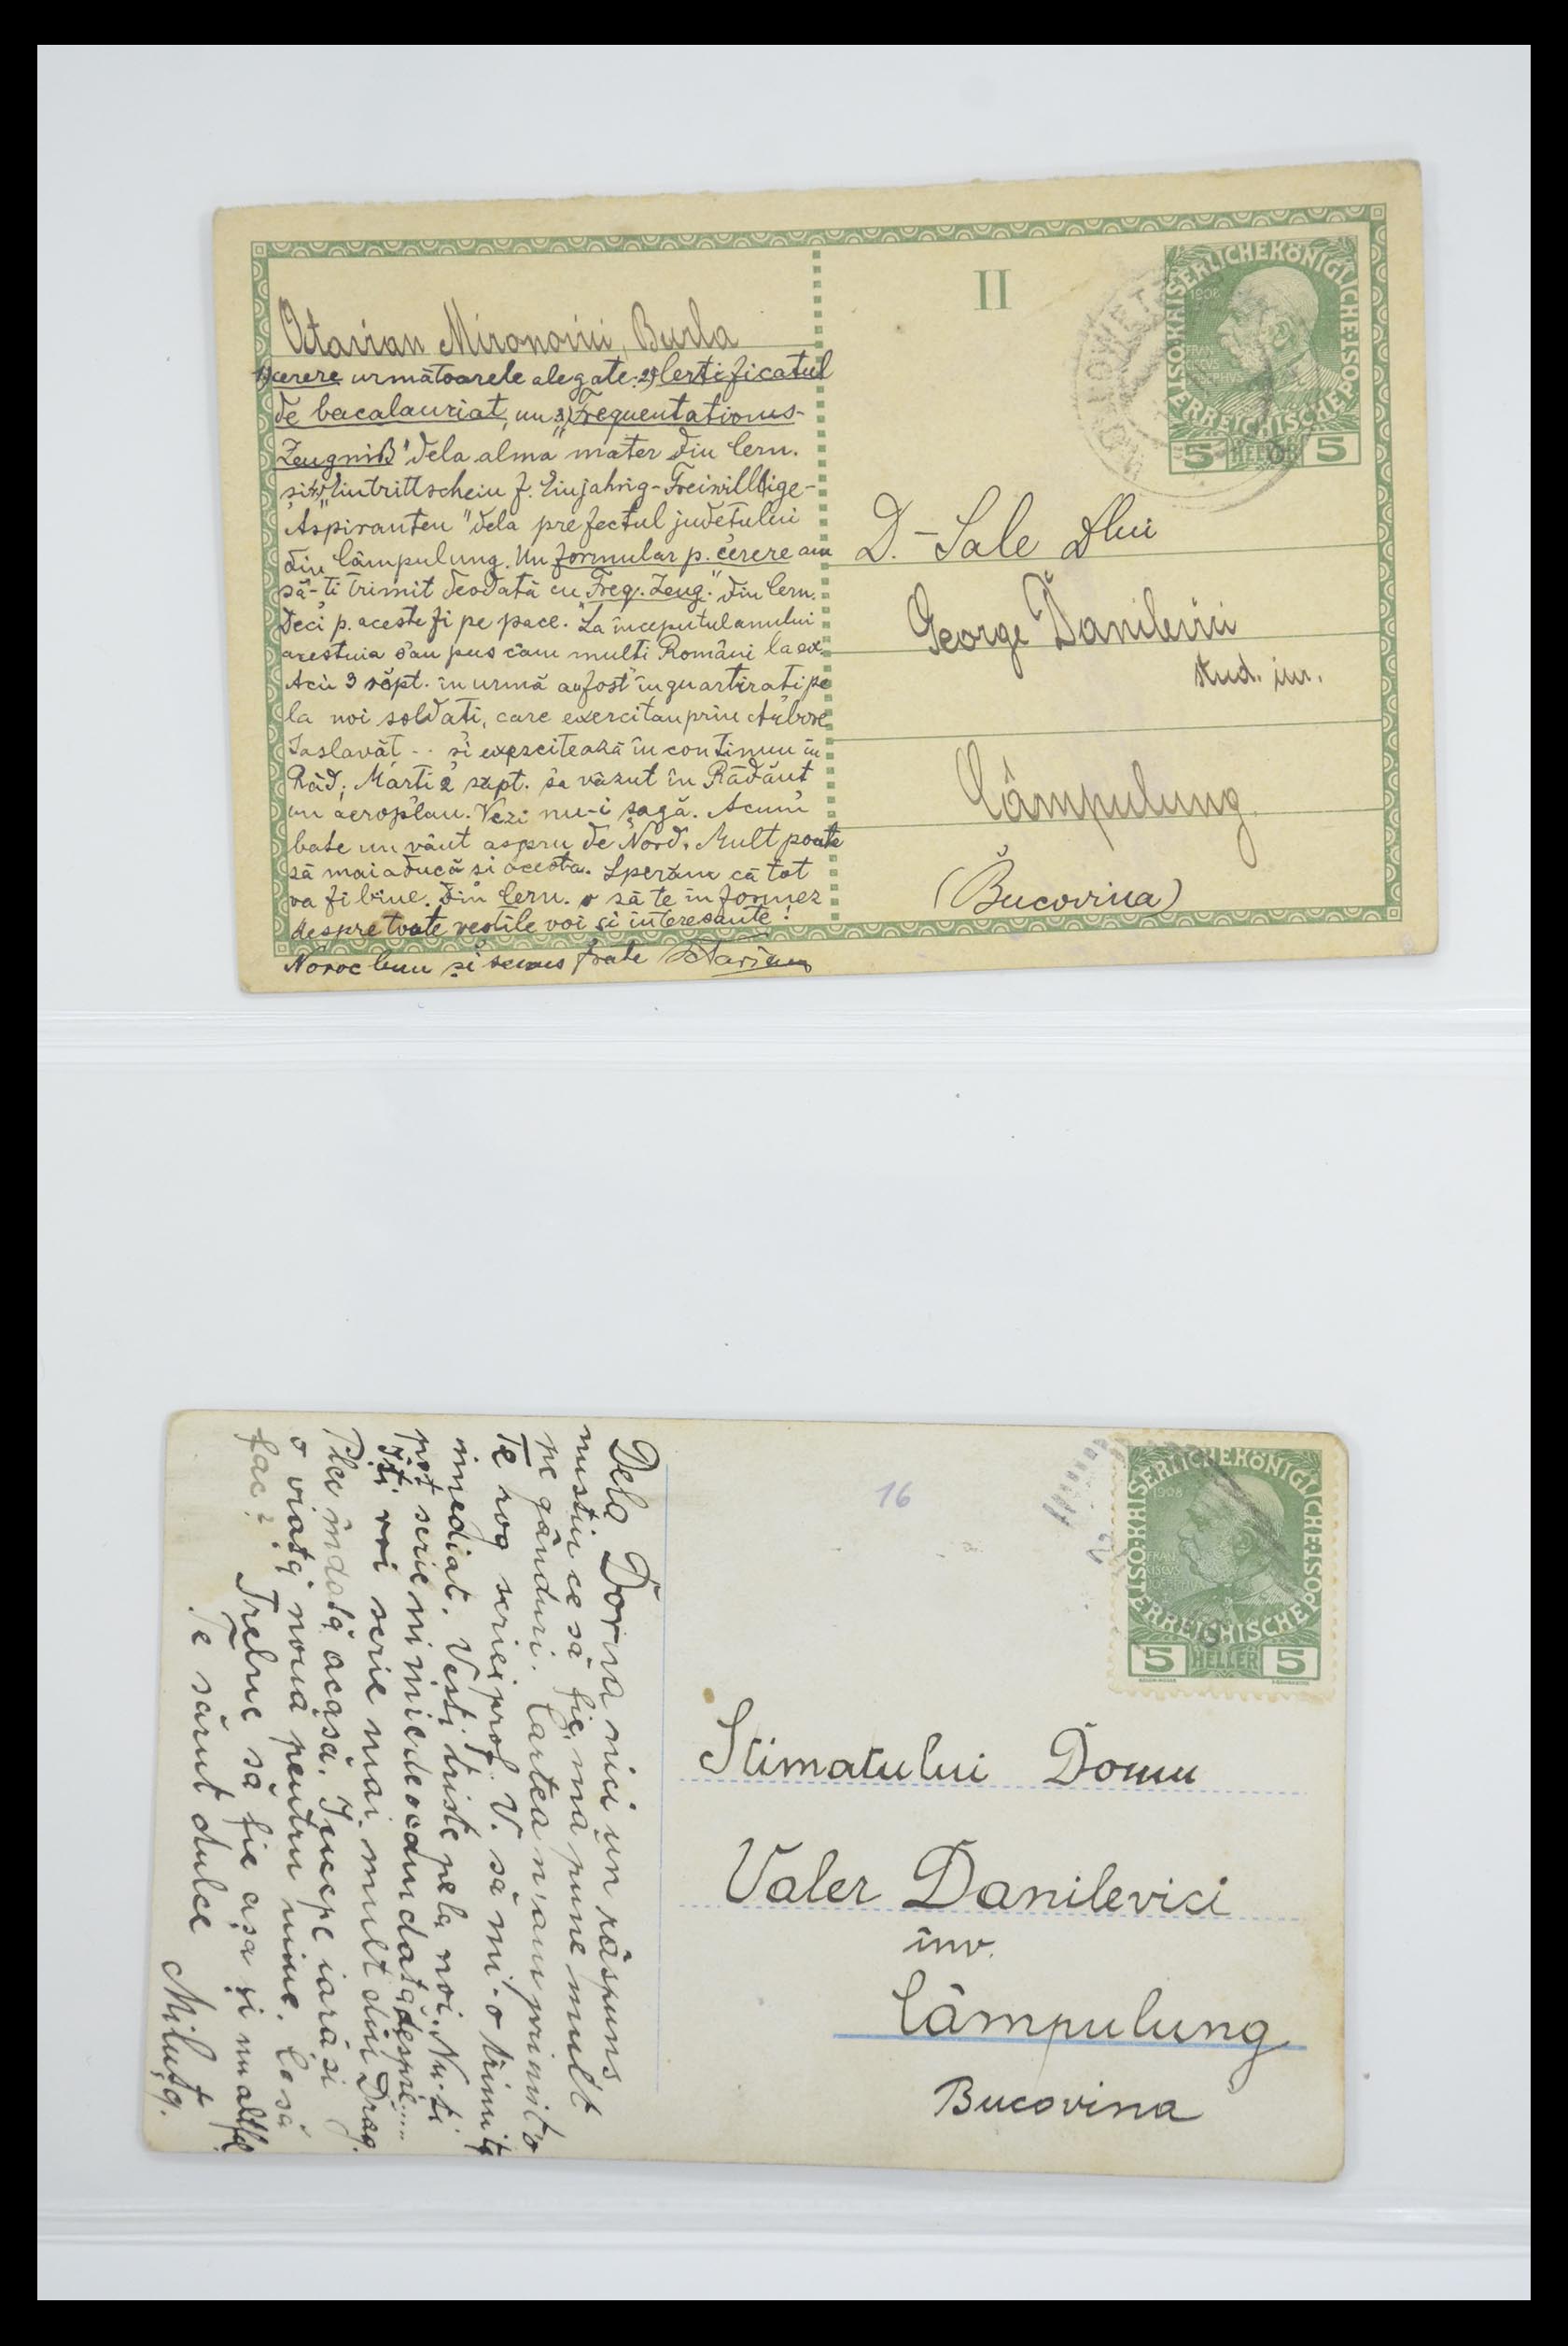 Octavian Mironovici, Burla
1) cerere următoarele alegate: 2) Certificatul
de bacalauriat, un 3) „Frequentations-
Zeugniß" dela alma mater din Cern.
si 4) Eintrittschein f. Einjährig-Freiwillige-
Aspiranten" dela prefectul judetului
din Câmpulung. Un formular p. cerere am
să-ti trimit deodată cu „Freq. Zeug." din Cern.
Deci p. aceste fi pe pace. La inceputul anului
acestuia s'au pus cam multi Români la ex.
Acu 3 săpt. în urmă au fost inquartirati pe
la noi soldati, care exercitau prin Arbore
Iaslovăt -- si exercitează în continuu în
Răd; Marti 2 sept. sa văzut în Rădăut
un aeroplan. Vezi nu-i șagă. Acum
bate un vânt aspru de Nord. Mult poate
să mai aducă si acesta. Sperăm că tot
va fi bine. Din Cern. o să te informez
despre toate vestile noi și interesante!
Noroc bun și frate Octavian
II
KAISERLICHE KÖNIGLICHE ÖSTERREICHISCHE POST
1908
5 HELLER 5
D.-Sale Dlui
George Danilevici
stud. iur.
Câmpulung
(Bucovina)
Dela Dorna nici un răspuns
nustiu ce să fie, mă pune mult
pe gânduri. Cartea n'am primit'o
Te rog scriei prof. V. să mi-o trimită
imediat. Vesti triste pela noi. Nu-ti
pot scrie nimic deocamdată despre....
Iți voi scrie mai mult din Drag.
Plec îndată acasă. Incepe iarăsi
o viată nouă pentru mine. Ce să
fac? Trebue să fie așa și nu altfel
Te sărut dulce Miluță.
16
KAISERLICHE KÖNIGLICHE ÖSTERREICHISCHE POST
1908
5 HELLER 5
Stimatului Domn
Valer Danilevici
înv.
Câmpulung
Bucovina